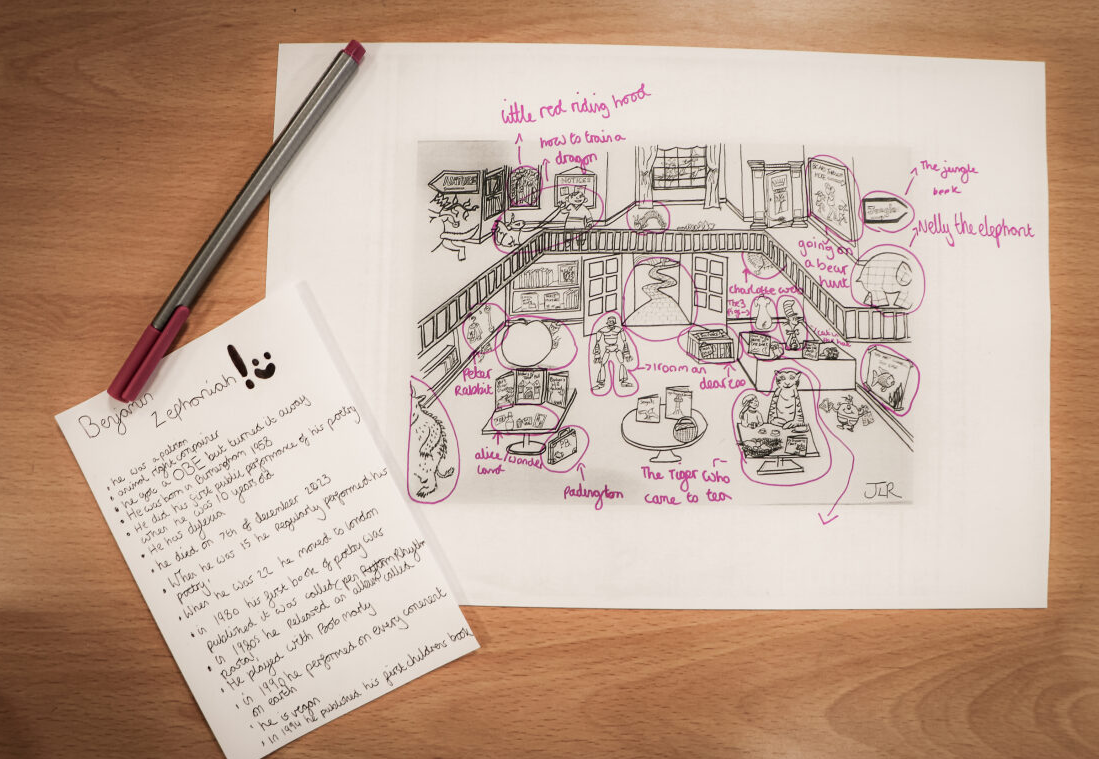 Benjamin
Zephoniah!
• he was a patron
• animal right campainer
• he got a OBE but turned it away
• He was born in Birmingham 1958
• He did his first public performance of his poetry
when he was 10 years old
• He has dyslexia
• he died on 7th of december 2023
• When he was 15 he regularly performed his
poetry!
• When he was 22 he moved to london
• in 1980 his first book of poetry was
published it was called (pen Rhythm
• in 1980s he released an album called
Rasta'
• He played with Bob marly
• in 1990 he performed on every conenent
on earth
• he is vegan
• in 1994 he published his first childrens book
little red riding hood
how to train a
dragon
The jungle
book
Nelly the elephant
going on
a bear
hunt
charlottes web
The 3
pigs
Peter
Rabbit
Ironman
dear zoo
alice wonder
land
Padington
The Tiger who
came to tea
NOTICES
JLR